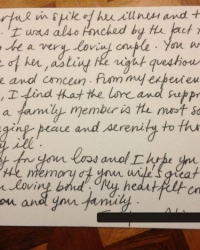 rful in spite of her illness and t
. I was also touched by the fact
be a very loving couple. You w
e of her, asking the right question
e and concern. From my experien
, I find that the love and suppo
a family member is the most
ging peace and serenity to tho
y ill.
y for your loss and I hope you
the memory of your wife's great
loving bond. My heartfelt con
ou and your family.